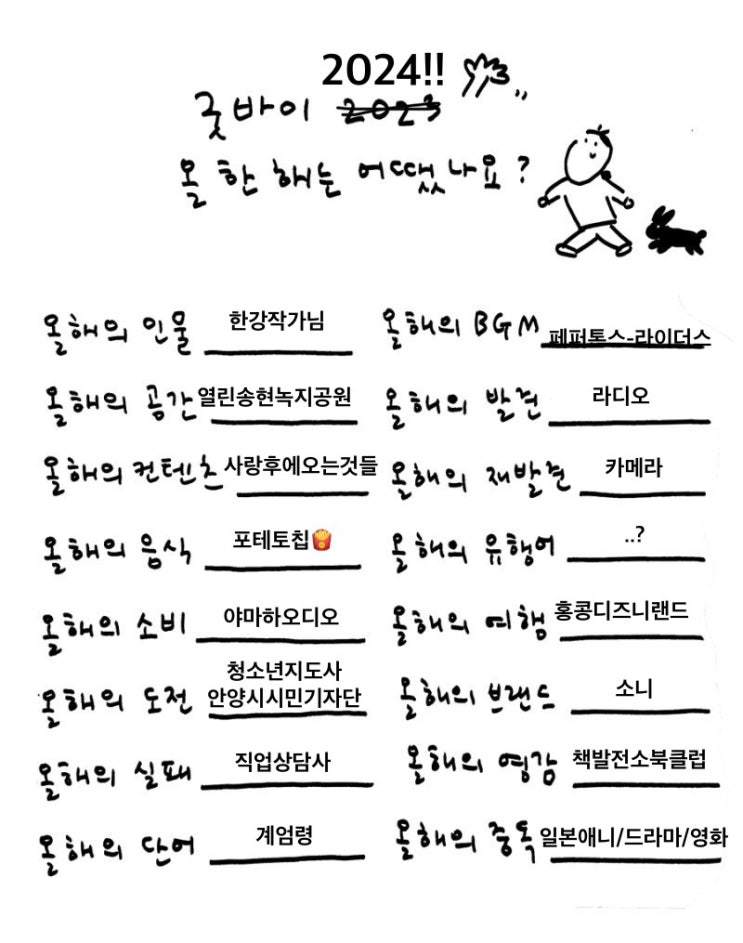 2024!!
굿바이 2023
올 한 해는 어땠나요?
올해의 인물 한강작가님
올해의 BGM 페퍼톤스-라이더스
올해의 공간 열린송현녹지공원
올해의 발견 라디오
올해의 컨텐츠 사랑후에오는것들
올해의 재발견 카메라
올해의 음식 포테토칩🍟
올해의 유행어 ..?
올해의 소비 야마하오디오
올해의 여행 홍콩디즈니랜드
올해의 도전 청소년지도사
안양시시민기자단
올해의 브랜드 소니
올해의 실패 직업상담사
올해의 영감 책발전소북클럽
올해의 단어 계엄령
올해의 중독 일본애니/드라마/영화